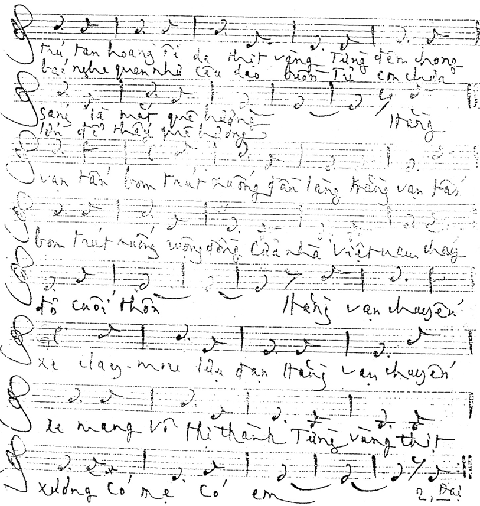 trú tan hoang Từ da thịt vàng Từng đêm chong
nghe quen như câu dạo buồn Trẻ em chưa
sáng là mắt quê hương
lớn đã thấy quê hương
Hàng
vạn tấn bom trút xuống đầu làng Hàng vạn tấn
bom trút xuống ruộng đồng Cửa nhà Việt nam cháy
đỏ cuối thôn Hàng vạn chuyến
xe clay-more lựu đạn Hàng vạn chuyến
xe mang vô thị thành Từng vùng thịt
xương Có mẹ Có em 2, Đại